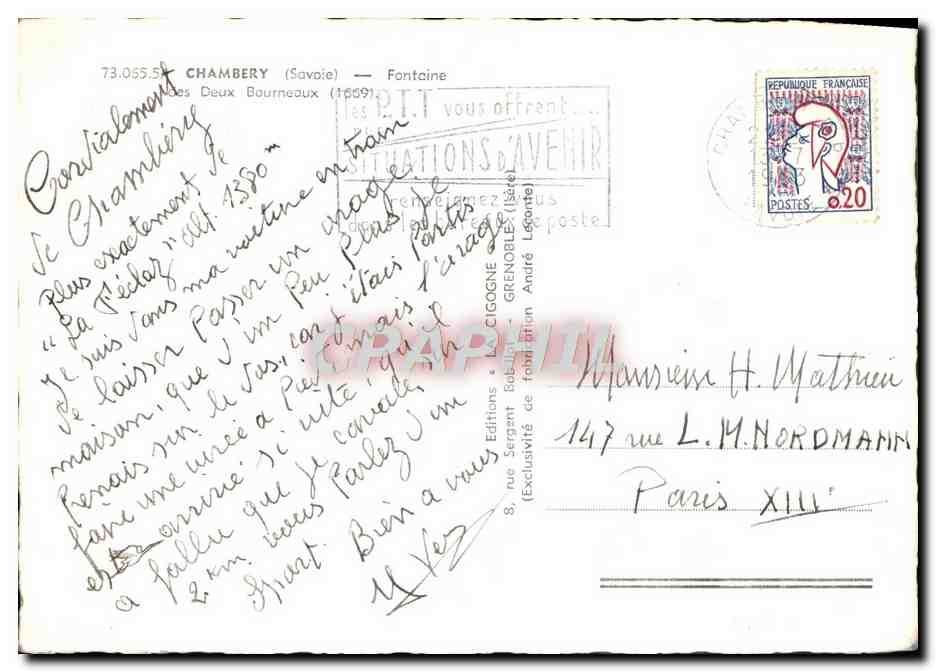 73.065.5 CHAMBERY (Savoie) — Fontaine
des Deux Bourneaux (1669)
les P.T.T vous offrent....
SITUATIONS D'AVENIR
renseignez-vous
poste
REPUBLIQUE FRANÇAISE
POSTES 0.20
Cordialement
de Chambéry
plus exactement de
"La Féclaz" alt. 1380 m
Je suis dans ma voiture en train
de laisser passer un orage
maison, que d'un peu plus je
prenais sur le dos, car j'étais partis
faire une virée à pied mais l'orage
est arrivé si vite qu'il
a fallu que je cavale sur
2 km vous parlez d'un
sport. Bien a vous
Editions "LA CIGOGNE"
8, rue Sergent Bobillot - GRENOBLE (Isère)
(Exclusivité de fabrication André Leconte)
CPARPHIL
Monsieur H. Mathieu
147 rue L.M. NORDMANN
Paris XIIIe